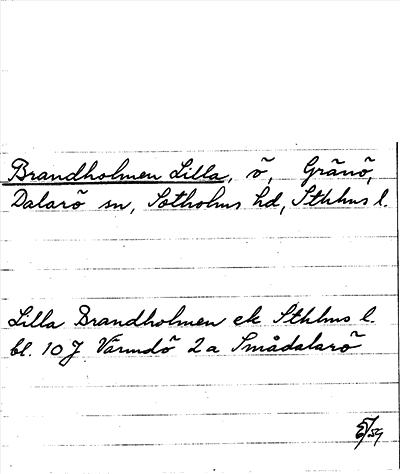 Brandholmen Lilla, ö, Gränö,
Dalarö sn, Sotholms hd, Sthlms l.
Lilla Brandholmen ek Sthlms l.
bl. 10 J Värmdö 2 a Smådalarö